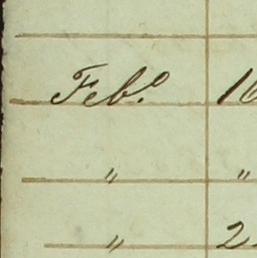 Feb.º 16
" "
" 2